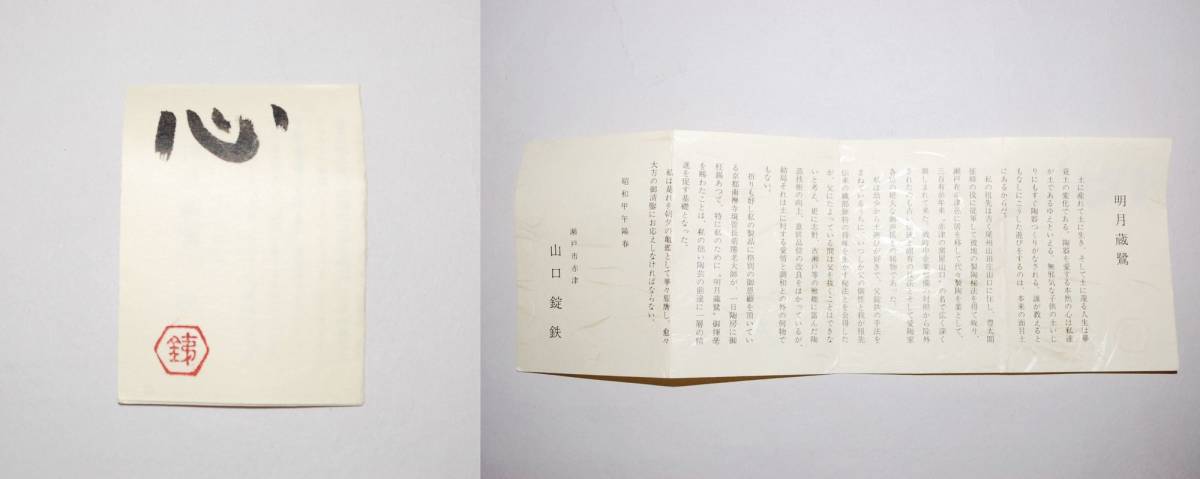 心
銕
明月蔵鷺
土に産れて土に生き、そして土に還る人生は畢
竟土の変化である。陶器を愛する本然の心は私達
が土であるゆえといえる。無邪気な子供の土いじ
りにもすぐ陶器つくりがなされる。誰が教えると
もなしにこうした遊びをするのは、本来の面目土
にあるからだ。
私の祖先は古く尾州山田庄山口に住し、豊太閤
征韓の役に従軍して彼地の製陶秘法を得て帰り、
瀬戸在赤津邑に居を移して代々製陶を業とし、
三百有余年来〝赤津の窯屋山口〟の名で広く深く
親しまれて来た。戦時中企業整備の対照から除外
されたのも古い伝統と固有の技法とそして愛陶家
各位の絶大な御声援の賜物であった。
私は幼少から土遊びが好きで、父錠鉄の手法を
まねているうちに、いつしか父の個性と我が祖先
伝来の織部独特の持味を生かす秘法とを会得した
が、父にたよっている間は父を抜くことはできな
いと考え、更に志野、古瀬戸等の雅趣に富んだ陶
芸技術の向上、意匠品位の改良をはかっているが、
結局それは土に対する愛情と調和との外の何物で
もない。
折りも好し私の製品に格別の御恩顧を頂いてい
る京都南禅寺
を賜わったことは、私の拙い陶芸の前途に一層の精
進を促す基礎となった。
私は是れを朝夕の亀鑑として孳々聖鷹し、愈々
大方の御清鑒にお応えしなければならない。
昭和甲午陽春
瀬戸市赤津
山口錠鉄